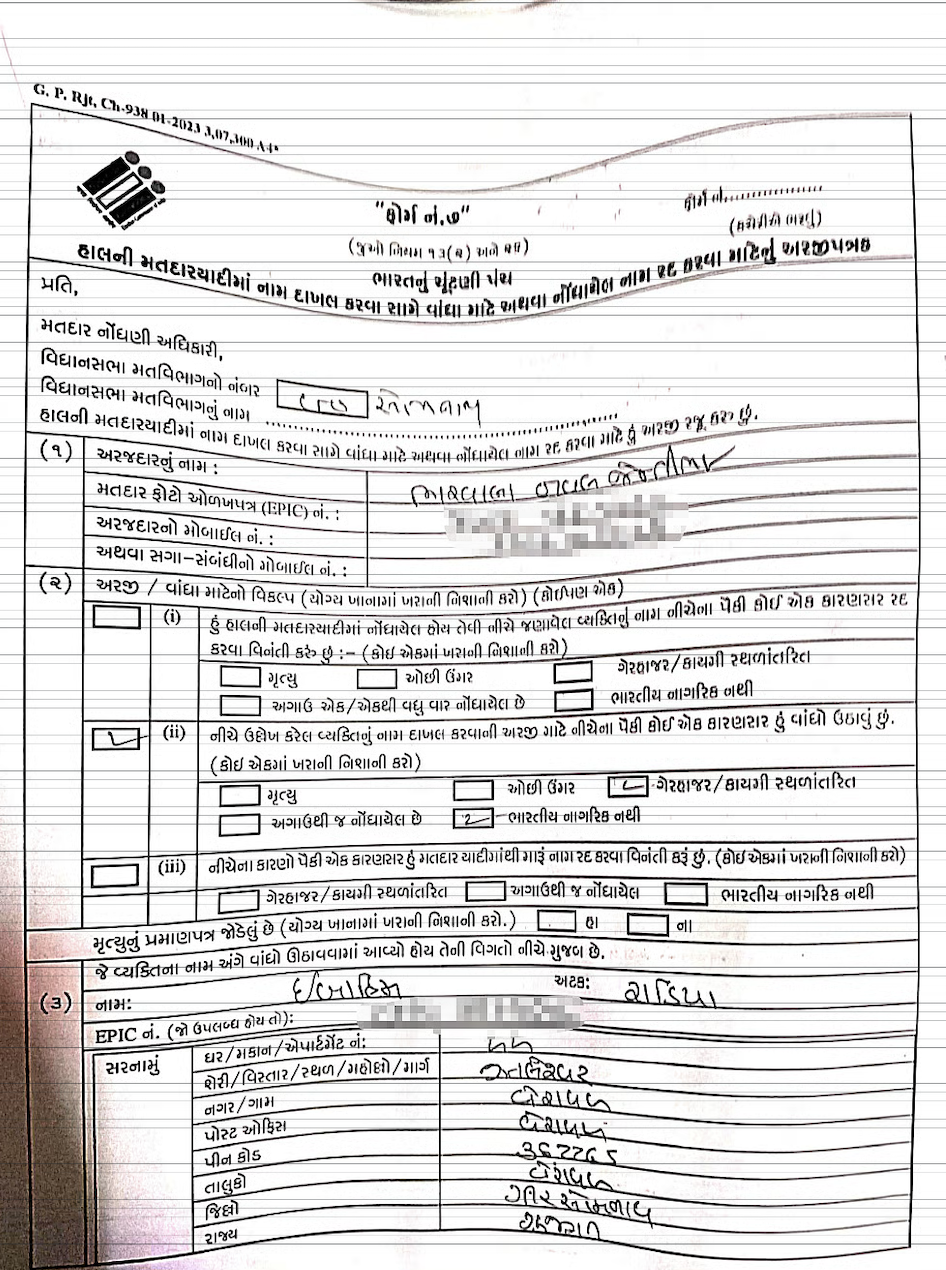 G. P. Rjt, Ch-938 01-2023 3,07,300 A4*
"ફોર્મ નં.૭"
ફોર્મ નં.................
(કચેરીએ ભરવું)
(જુઓ નિયમ ૧૩(૨) અને ૨૬)
ભારતનું ચૂંટણી પંચ
હાલની મતદારયાદીમાં નામ દાખલ કરવા સામે વાંધા માટે અથવા નોંધાયેલ નામ રદ કરવા માટેનું અરજીપત્રક
પ્રતિ,
મતદાર નોંધણી અધિકારી,
વિધાનસભા મતવિભાગનો નંબર
વિધાનસભા મતવિભાગનું નામ સોમનાથ
હાલની મતદારયાદીમાં નામ દાખલ કરવા સામે વાંધા માટે અથવા નોંધાયેલ નામ રદ કરવા માટે હું અરજી રજૂ કરું છું.
(૧) અરજદારનું નામ :
મતદાર ફોટો ઓળખપત્ર (EPIC) નં. :
અરજદારનો મોબાઈલ નં. :
અથવા સગા-સંબંધીનો મોબાઈલ નં. :
(૨) અરજી / વાંધા માટેનો વિકલ્પ (યોગ્ય ખાનામાં ખરાની નિશાની કરો) (કોઈપણ એક)
(i) હું હાલની મતદારયાદીમાં નોંધાયેલ હોય તેવી નીચે જણાવેલ વ્યક્તિનું નામ નીચેના પૈકી કોઈ એક કારણસર રદ
કરવા વિનંતી કરું છું :- (કોઇ એકમાં ખરાની નિશાની કરો)
મૃત્યુ ઓછી ઉંમર ગેરહાજર/કાયમી સ્થળાંતરિત
અગાઉ એક/એકથી વધુ વાર નોંધાયેલ છે ભારતીય નાગરિક નથી
(ii) નીચે ઉલ્લેખ કરેલ વ્યક્તિનું નામ દાખલ કરવાની અરજી માટે નીચેના પૈકી કોઈ એક કારણસર હું વાંધો ઉઠાવું છું.
(કોઇ એકમાં ખરાની નિશાની કરો)
મૃત્યુ ઓછી ઉંમર ગેરહાજર/કાયમી સ્થળાંતરિત
અગાઉથી જ નોંધાયેલ છે ભારતીય નાગરિક નથી
(iii) નીચેના કારણો પૈકી એક કારણસર હું મતદાર યાદીમાંથી મારૂં નામ રદ કરવા વિનંતી કરું છું. (કોઇ એકમાં ખરાની નિશાની કરો)
ગેરહાજર/કાયમી સ્થળાંતરિત અગાઉથી જ નોંધાયેલ ભારતીય નાગરિક નથી
મૃત્યુનું પ્રમાણપત્ર જોડેલું છે (યોગ્ય ખાનામાં ખરાની નિશાની કરો.) હા ના
જે વ્યક્તિના નામ અંગે વાંધો ઉઠાવવામાં આવ્યો હોય તેની વિગતો નીચે મુજબ છે.
(૩) નામ: ઈબ્રાહિમ અટક:
EPIC નં. (જો ઉપલબ્ધ હોય તો):
સરનામું ઘર/મકાન/એપાર્ટમેંટ નં: ૫૫
શેરી/વિસ્તાર/સ્થળ/મહોલ્લો/માર્ગ
નગર/ગામ વેરાવળ
પોસ્ટ ઓફિસ વેરાવળ
પીન કોડ ૩૬૨૨૬૫
તાલુકો વેરાવળ
જિલ્લો ગીર સોમનાથ
રાજ્ય ગુજરાત